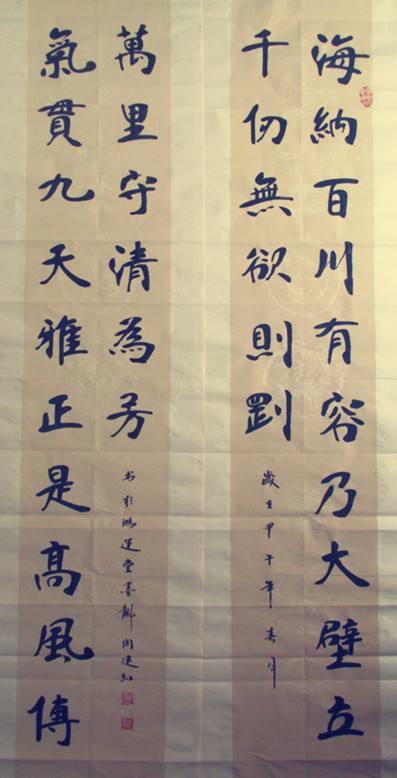 海納百川有容乃大壁立
千仞無欲則剛
歲在甲午年春月
氣貫九天雅正是高風傳
萬里守清為芳
书於鴻運堂墨